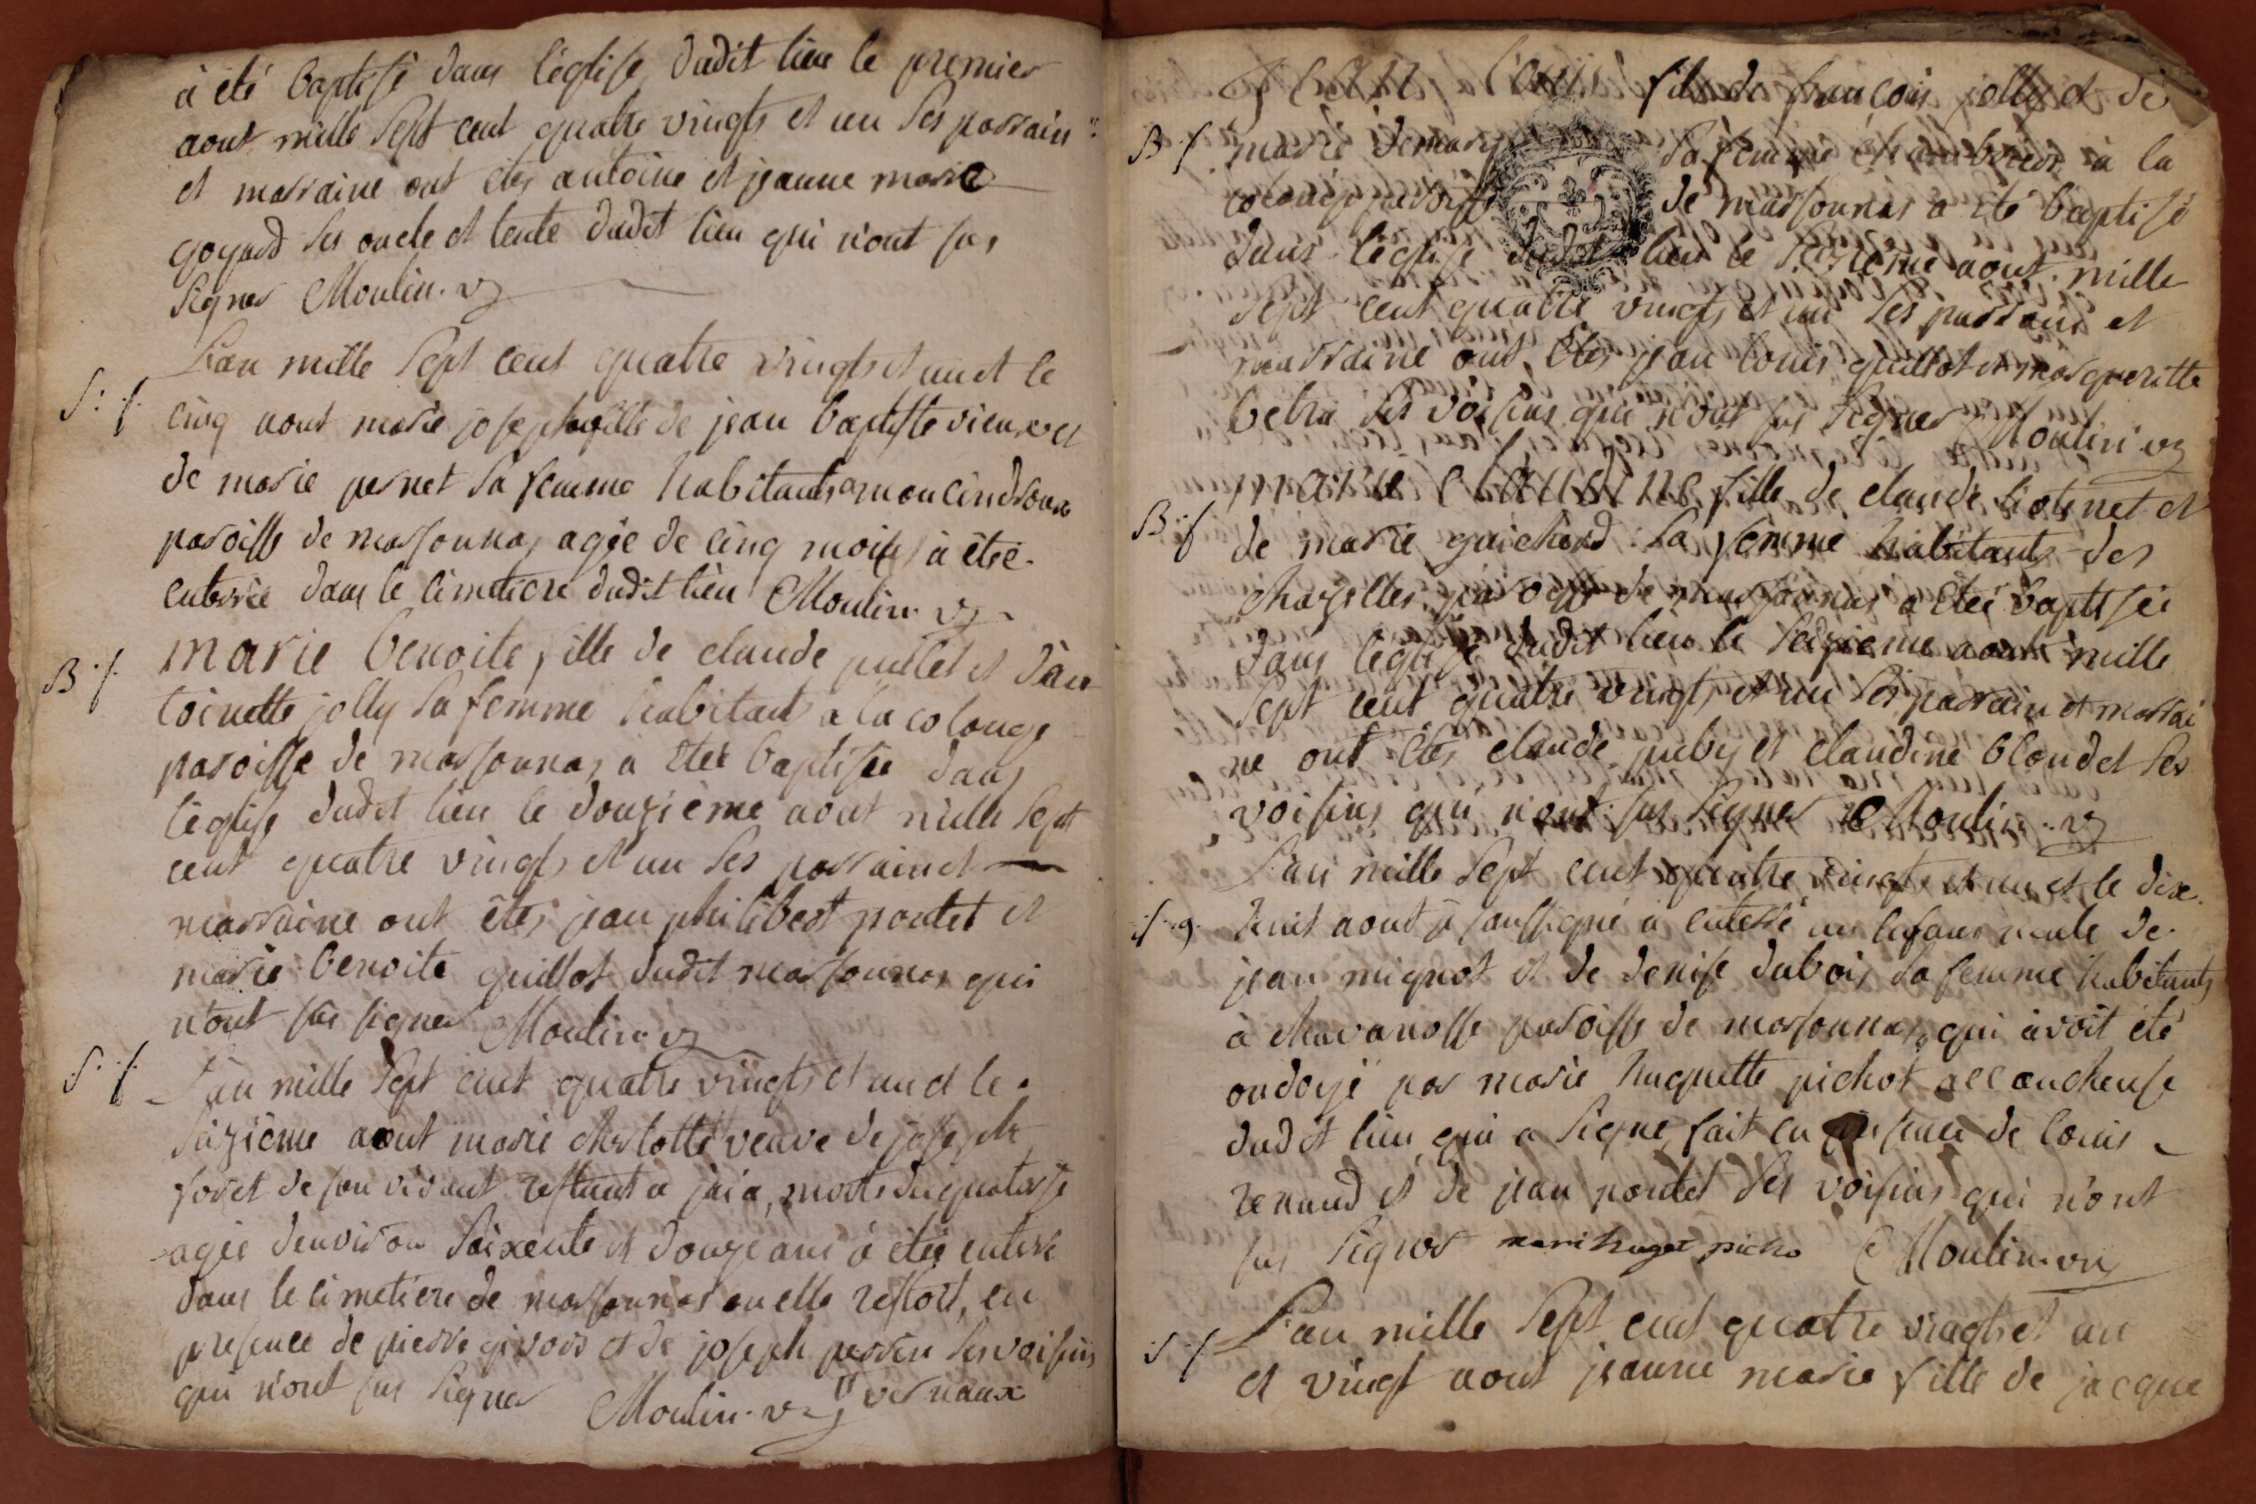 à été baptisé dans l'église dudit lieu le premier
aout mille sept cent quatre vingts et un ses parrain
et marraine ont étés antoine et jeanne marie
goyard ses oncle et tente dudit lieu qui n'ont sus
signer Moulin. v
S. f. L'an mille sept cent quatre vingts et un et le
cinq aout marie josephe fille de jean baptiste vieux et
de marie pernet sa femme habitants a moncindroux
paroisse de marsonnas agée de cinq mois à étée
enterrée dans le cimetiere dudit lieu Moulin. v
B. f. marie benoite fille de claude puillet et d'an
toinette jolly sa femme habitants a la colonge
paroisse de marsonnas a étée baptisée dans
l'église dudit lieu le douzième aout mille sept
cent quatre vingts et un ses parrain et
marraine ont étés jean philibert poutet et
marie benoite guillot dudit marsonnas qui
n'ont sus signer Moulin. v
S. f. L'an mille sept cent quatre vingts et un et le
saizième aout marie charlotte veuve de joseph
foret de son vivant restant a jaia, morte du quatorse
agée d'environ soixente et douze ans à étée enterré
dans le cimetiere de marsonnas ou elle restoit, en
presence de pierre givors et de joseph perrin ses voisins
qui n'ont sus signer Moulin. v vernaux
louis fils de françois jolly et de
B. f. marie sa femme à la
colonge paroisse de marsonnas a été baptisé
dans l'église dudit lieu le aout mille
sept cent quatre vingts et un ses parrain et
marraine ont étés jean louis guillot et margueritte
betra ses voisins qui n'ont sus signer Moulin v
B. f. marie claudine fille de claude liotenet et
de marie guichard sa femme habitants des
chazelles paroisse de marsonnas a étée baptisée
dans l'église dudit lieu le seizieme aout mille
sept cent quatre vingts et un ses parrain et marrai
ne ont étés claude puby et claudine blondet ses
voisins qui n'ont sus signer Moulin. v
L'an mille sept cent quatre vingts et un et le dix
S. g. huit aout je soussigné a enterré un enfant male de
jean mignot et de denise dubois sa femme habitants
à chavanosse paroisse de marsonnas, qui avoit été
ondoyé par marie huguette pichot accoucheuse
dudit lieu qui a signé, fait en presence de louis
renaud et de jean poutet ses voisins qui n'ont
sus signer mari huget picho Moulin. v
S. f. L'an mille sept cent quatre vingts et un
et vingt aout jeanne marie fille de jacque